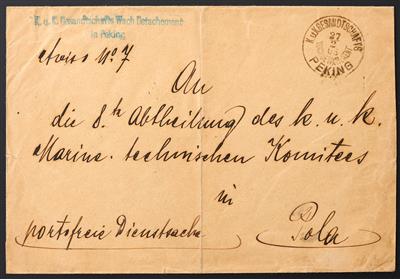 K. u. K. Gesandtschafts Wach Detachement
in Peking.
K.u.K. GESANDTSCHAFTS
27
PEKING
Aviso No 7
An
die 8. te Abtheilung des k. u. k.
Marine-technischen Komitees
in
portofreie Dienstsache
Pola